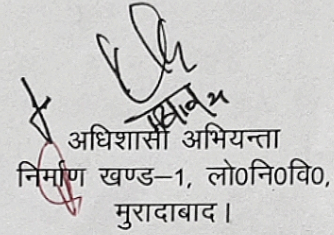 अधिशासी अभियन्ता
निर्माण खण्ड–1, लो0नि0वि0,
मुरादाबाद।